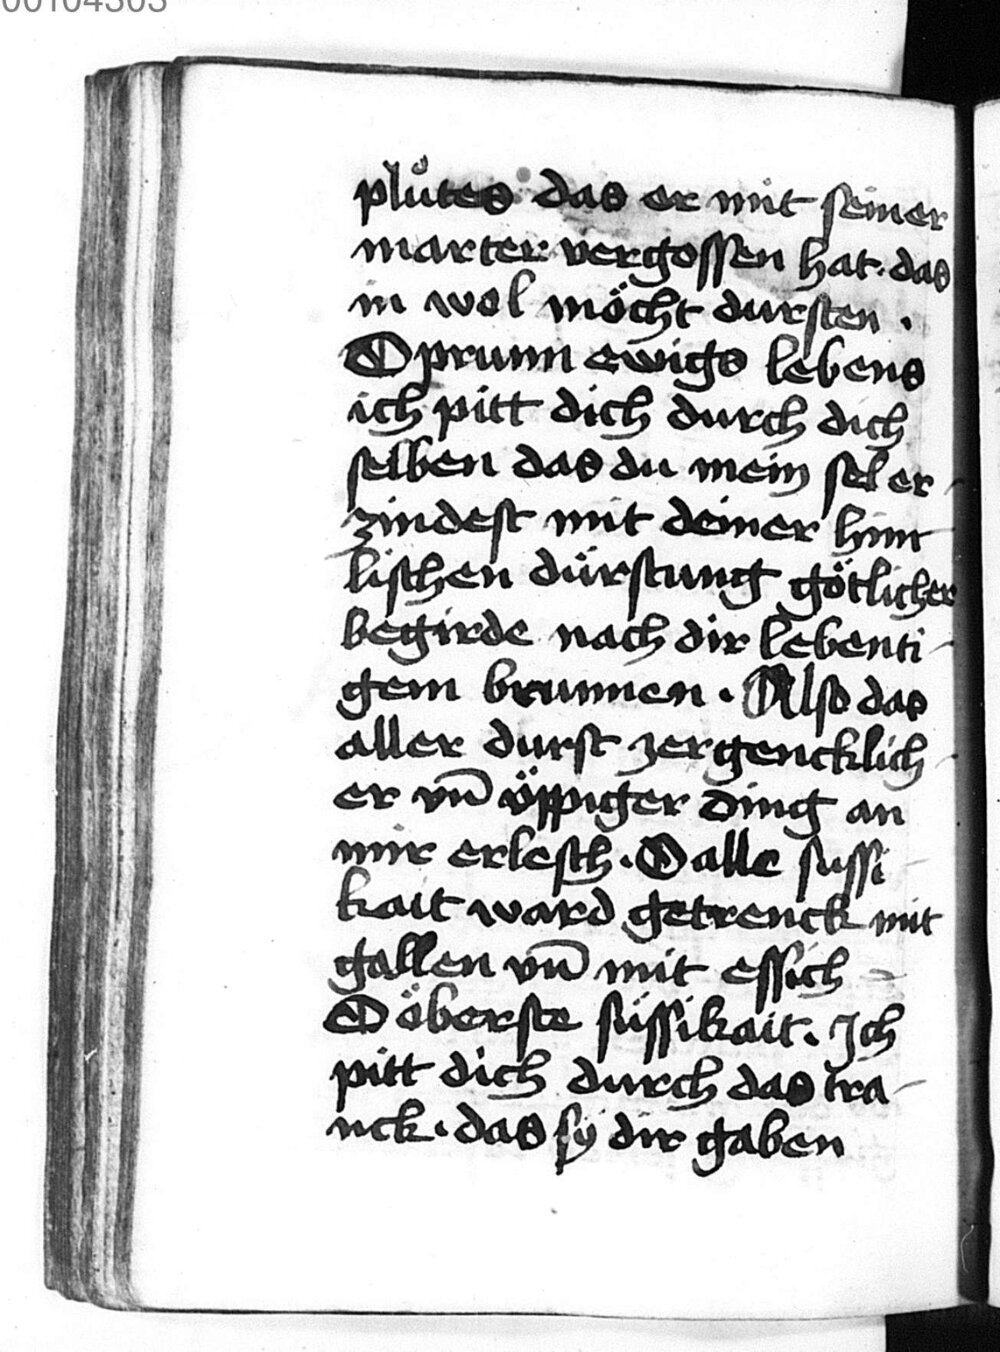 00104303
plůtes das er mit seiner
marter vergossen hat. das
in wol möcht dursten.
O prunn ewigs lebens
ich pitt dich durch dich
selben das du mein sel er-
zindest mit deiner him-
lischen dürstung götlicher
begirde nach dir lebenti-
gem brunnen. Also das
aller durst zergencklich-
er vn̄ üppiger ding an
mir erlesch. O alle sussi-
kait ward getrenck mit
gallen vn̄ mit essich
O öberste süssikait. Ich
pitt dich durch das tra-
nck. das sÿ dir gaben